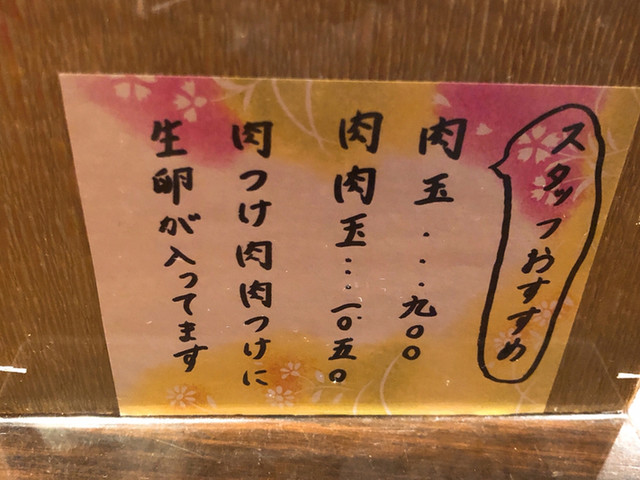 スタッフおすすめ
肉玉...九〇〇
肉肉玉...一〇五〇
肉つけ肉肉つけに
生卵が入ってます